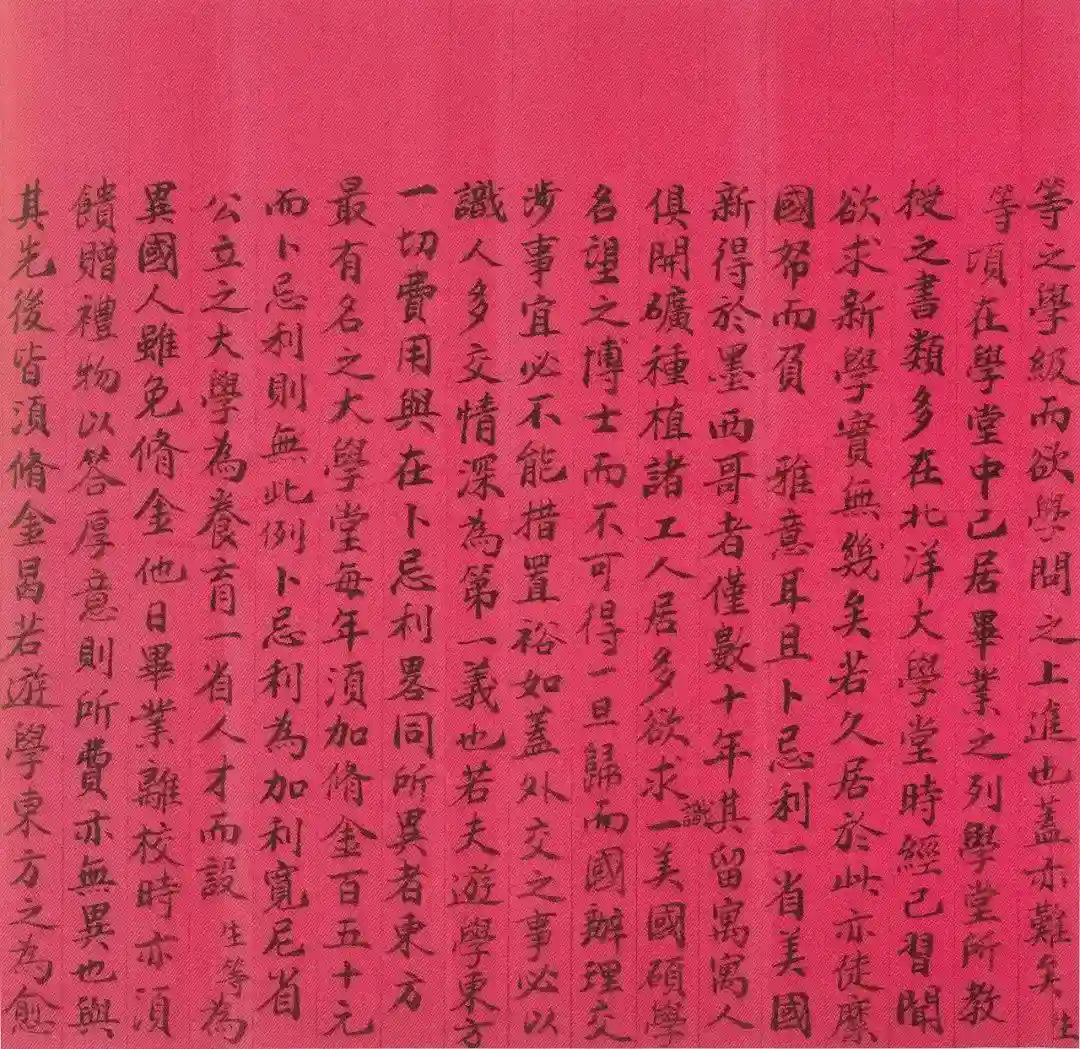 等之學級而欲學問之上進也蓋亦難矣生
等頃在學堂中已居畢業之列學堂所教
授之書類多在北洋大學堂時經已習聞
欲求新學實無幾矣若久居於此亦徒縻
國帑而負 雅意耳且卜忌利一省美國
新得於墨西哥者僅數十年其留寓寓人
俱開礦種植諸工人居多欲求一識美國碩學
名望之博士而不可得一旦歸而國辦理交
涉事宜必不能措置裕如蓋外交之事必以
識人多交情深為第一義也若夫遊學東方
一切費用與在卜忌利畧同所異者東方
最有名之大學堂每年須加脩金百五十元
而卜忌利則無此例卜忌利為加利寬尼省
公立之大學為養育一省人才而設生等為
異國人雖免脩金他日畢業離校時亦須
饋贈禮物以答厚意則所費亦無異也與
其先後皆須脩金曷若遊學東方之為愈